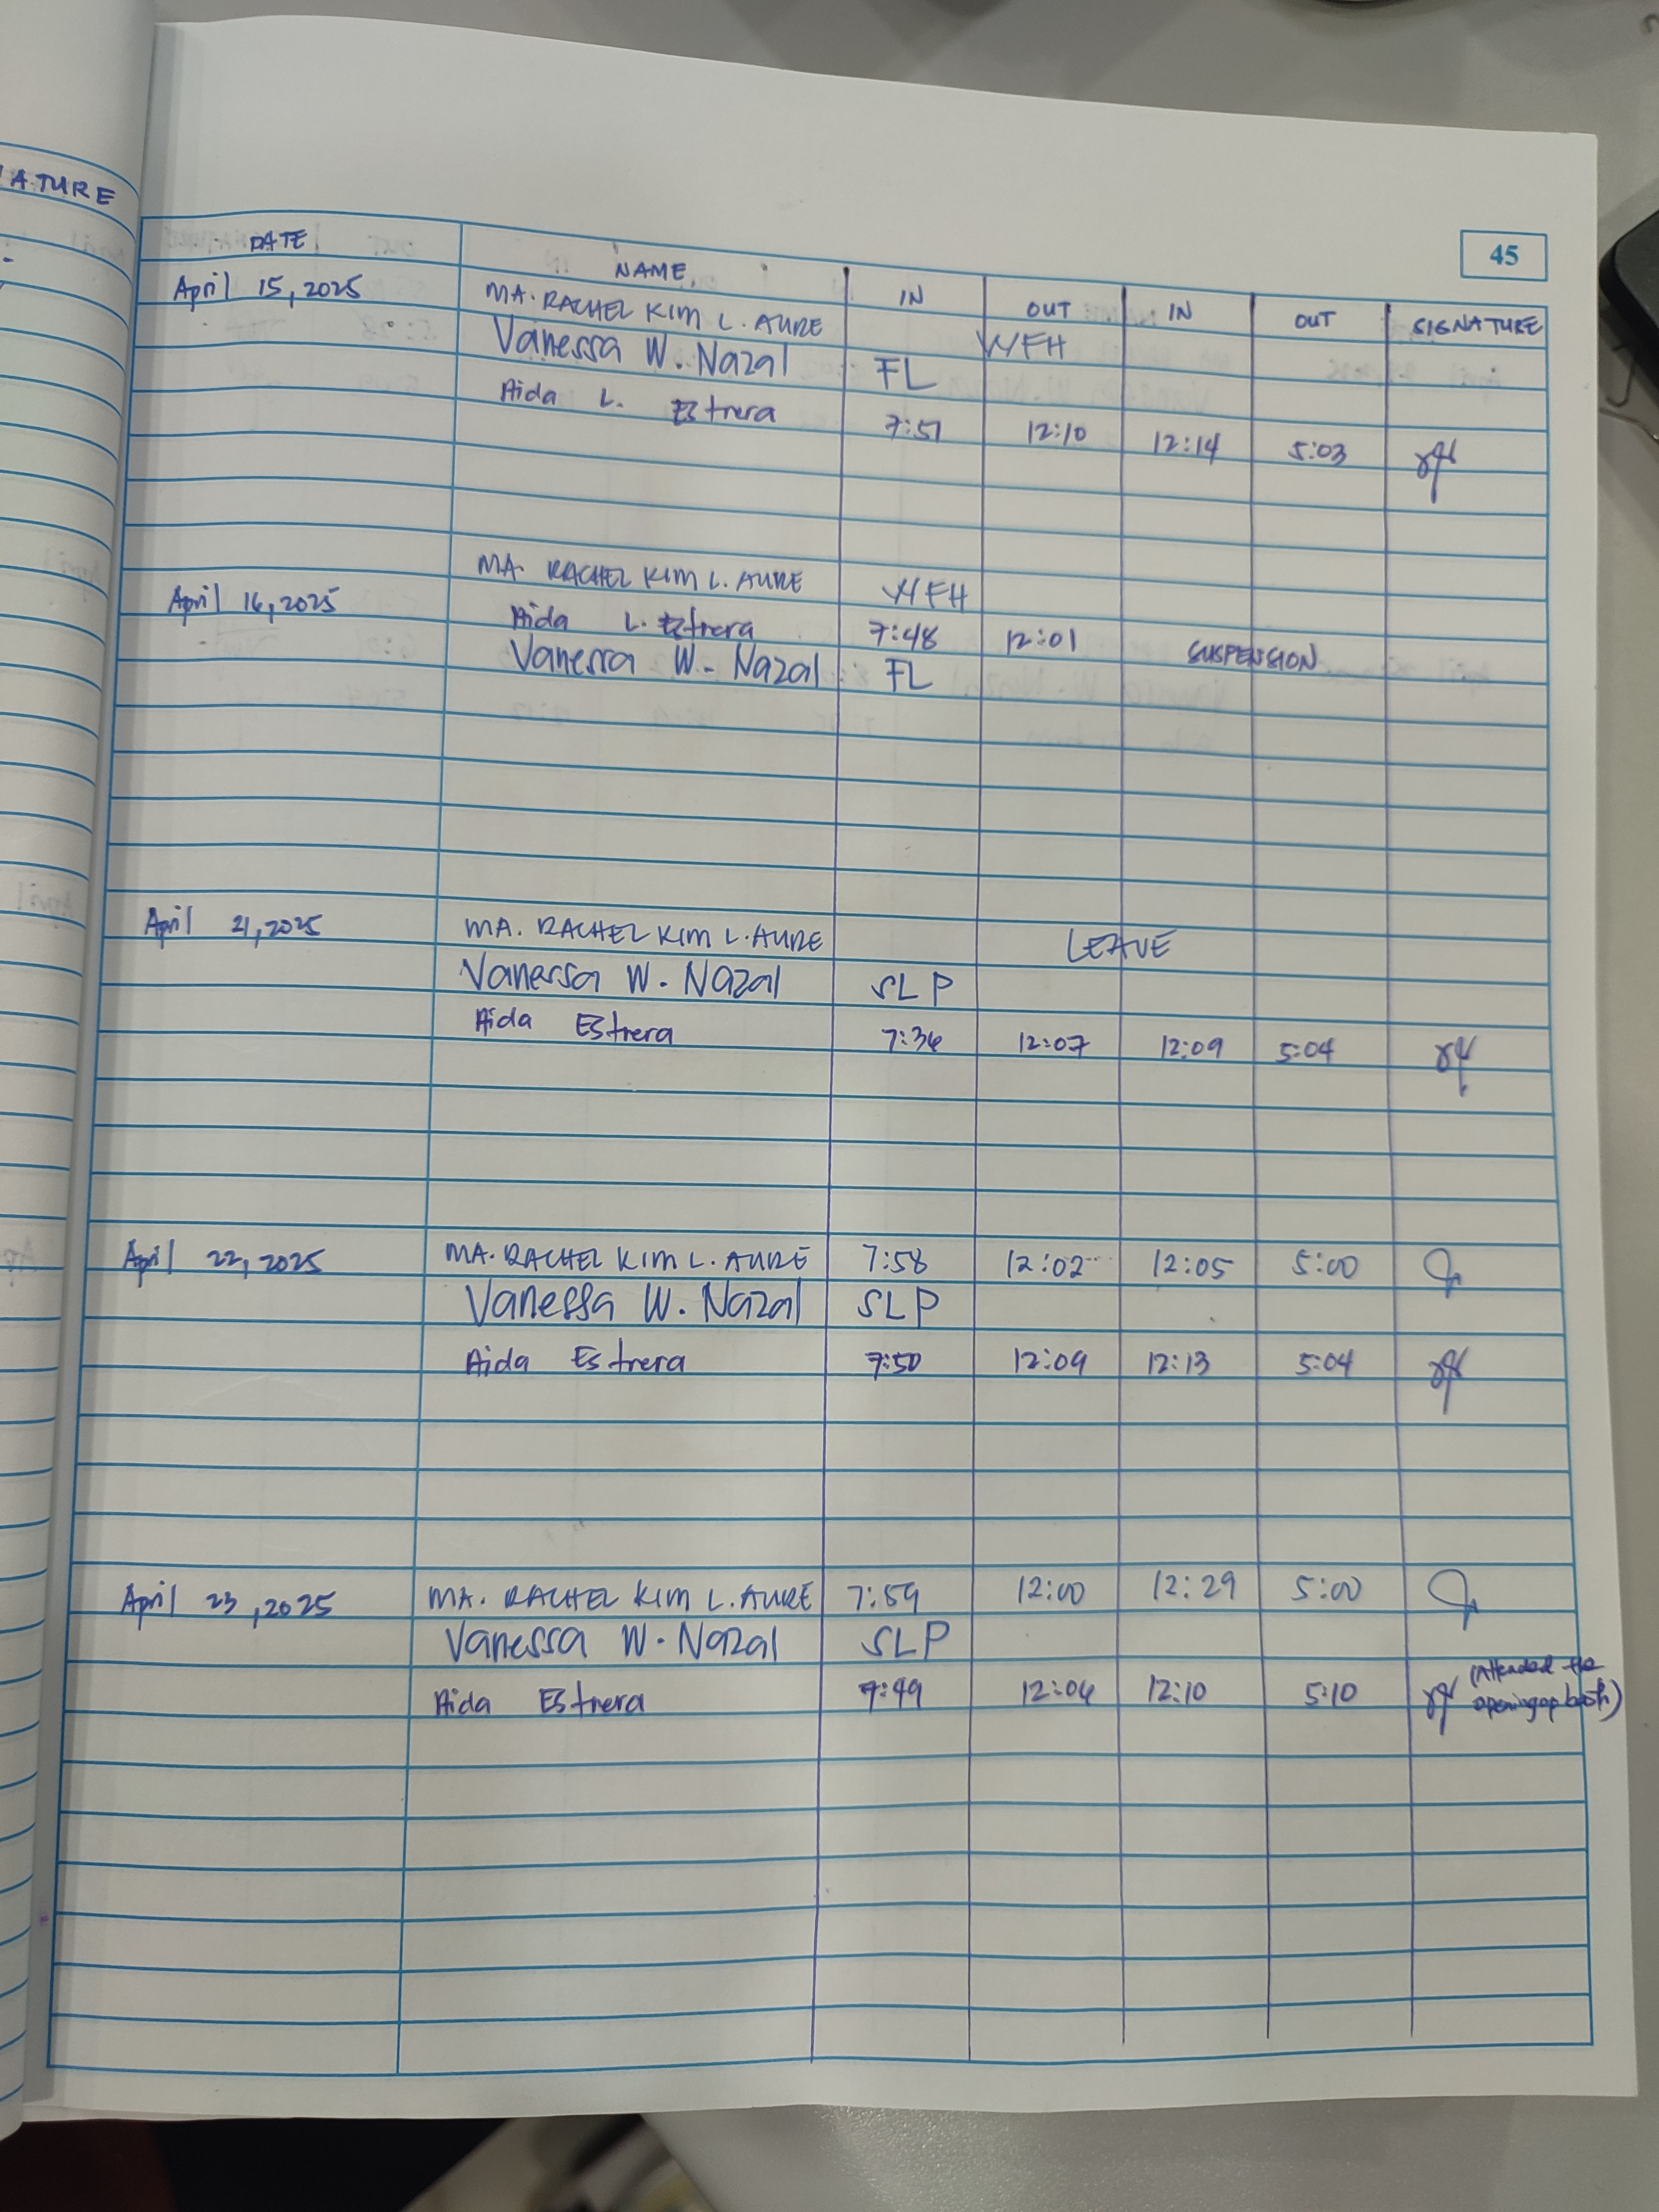 ATURE
45
DATE NAME IN OUT IN OUT SIGNATURE
April 15, 2025 MA. RACHEL KIM L. AURE WFH
Vanessa W. Nazal FL
Aida L. Estrera 7:51 12:10 12:14 5:03
MA. RACHEL KIM L. AURE WFH
April 16, 2025 Aida L. Estrera 7:48 12:01 SUSPENSION
Vanessa W. Nazal FL
April 21, 2025 MA. RACHEL KIM L. AURE LEAVE
Vanessa W. Nazal SLP
Aida Estrera 7:36 12:07 12:09 5:04
April 22, 2025 MA. RACHEL KIM L. AURE 7:58 12:02 12:05 5:00
Vanessa W. Nazal SLP
Aida Estrera 7:50 12:09 12:13 5:04
April 23, 2025 MA. RACHEL KIM L. AURE 7:59 12:00 12:29 5:00
Vanessa W. Nazal SLP
(Attended the
Aida Estrera 7:49 12:06 12:10 5:10 opening op booth)